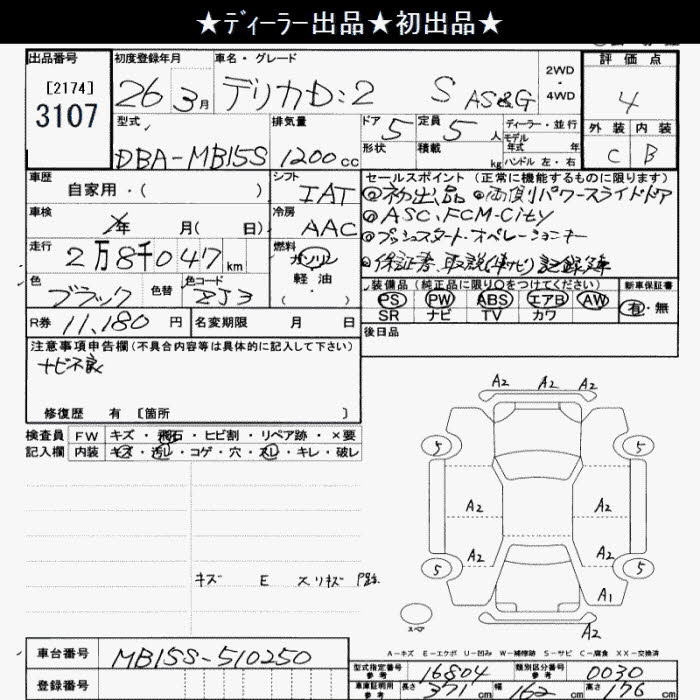 ★ディーラー出品★初出品★
出品番号
[2174]
3107
初度登録年月
26 3月
車名・グレード
デリカD:2 S AS&G
2WD・4WD
評価点
4
外装 内装
C B
型式
DBA-MB15S
排気量
1200cc
ドア 5
形状
定員 5人
積載 kg
ディーラー・並行
モデル年式 年
ハンドル 左・右
車歴
自家用・( )
シフト
IAT
セールスポイント(正常に機能するものに限ります)
◎初出品 ◎両側パワースライドドア
◎ASC、FCM-City
◎プッシュスタート・オペレーションキー
◎保証書、取説(ナビ)記録簿
車検
年 月( 日)
冷房
AAC
走行
2万8千047km
燃料
ガソリン
軽油
( )
色
ブラック
色替
色コード
ZJ3
装備品(純正品に限り〇をつけてください)
PS PW ABS エアB AW
SR ナビ TV カワ
新車保証書
有・無
R券 11,180円
名変期限 月 日
後日品
注意事項申告欄(不具合内容等は具体的に記入して下さい)
ナビ不良
修復歴 有 [箇所 ]
検査員記入欄
FW キズ・飛石・ヒビ割・リペア跡・×要
内装 キズ・汚レ・コゲ・穴・スレ・キレ・破レ
キズ E スリキズ
A2 A2 A2
5 5
A2 A2
A2 A2
5 5
A1
スペア
A2
A-キズ E-エクボ U-凹み W-補修跡 S-サビ C-腐食 XX-交換済
車台番号
MB15S-510250
登録番号
型式指定番号 参考 16804
類別区分番号 参考 0030
車庫証明用 参考 長さ 371cm 幅 162cm 高さ 176cm